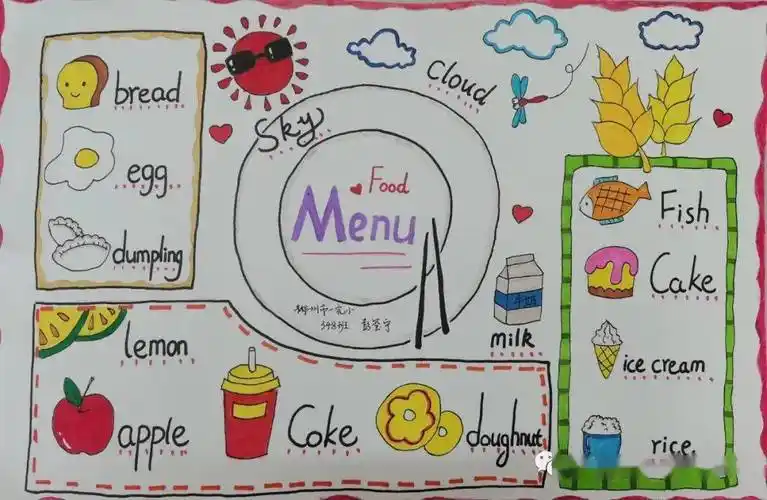 bread
egg
dumpling
Sky
Cloud
Food
Menu
郴州市一完小
Fish
Cake
ice cream
rice
牛奶
milk
lemon
apple
Coke
doughnut